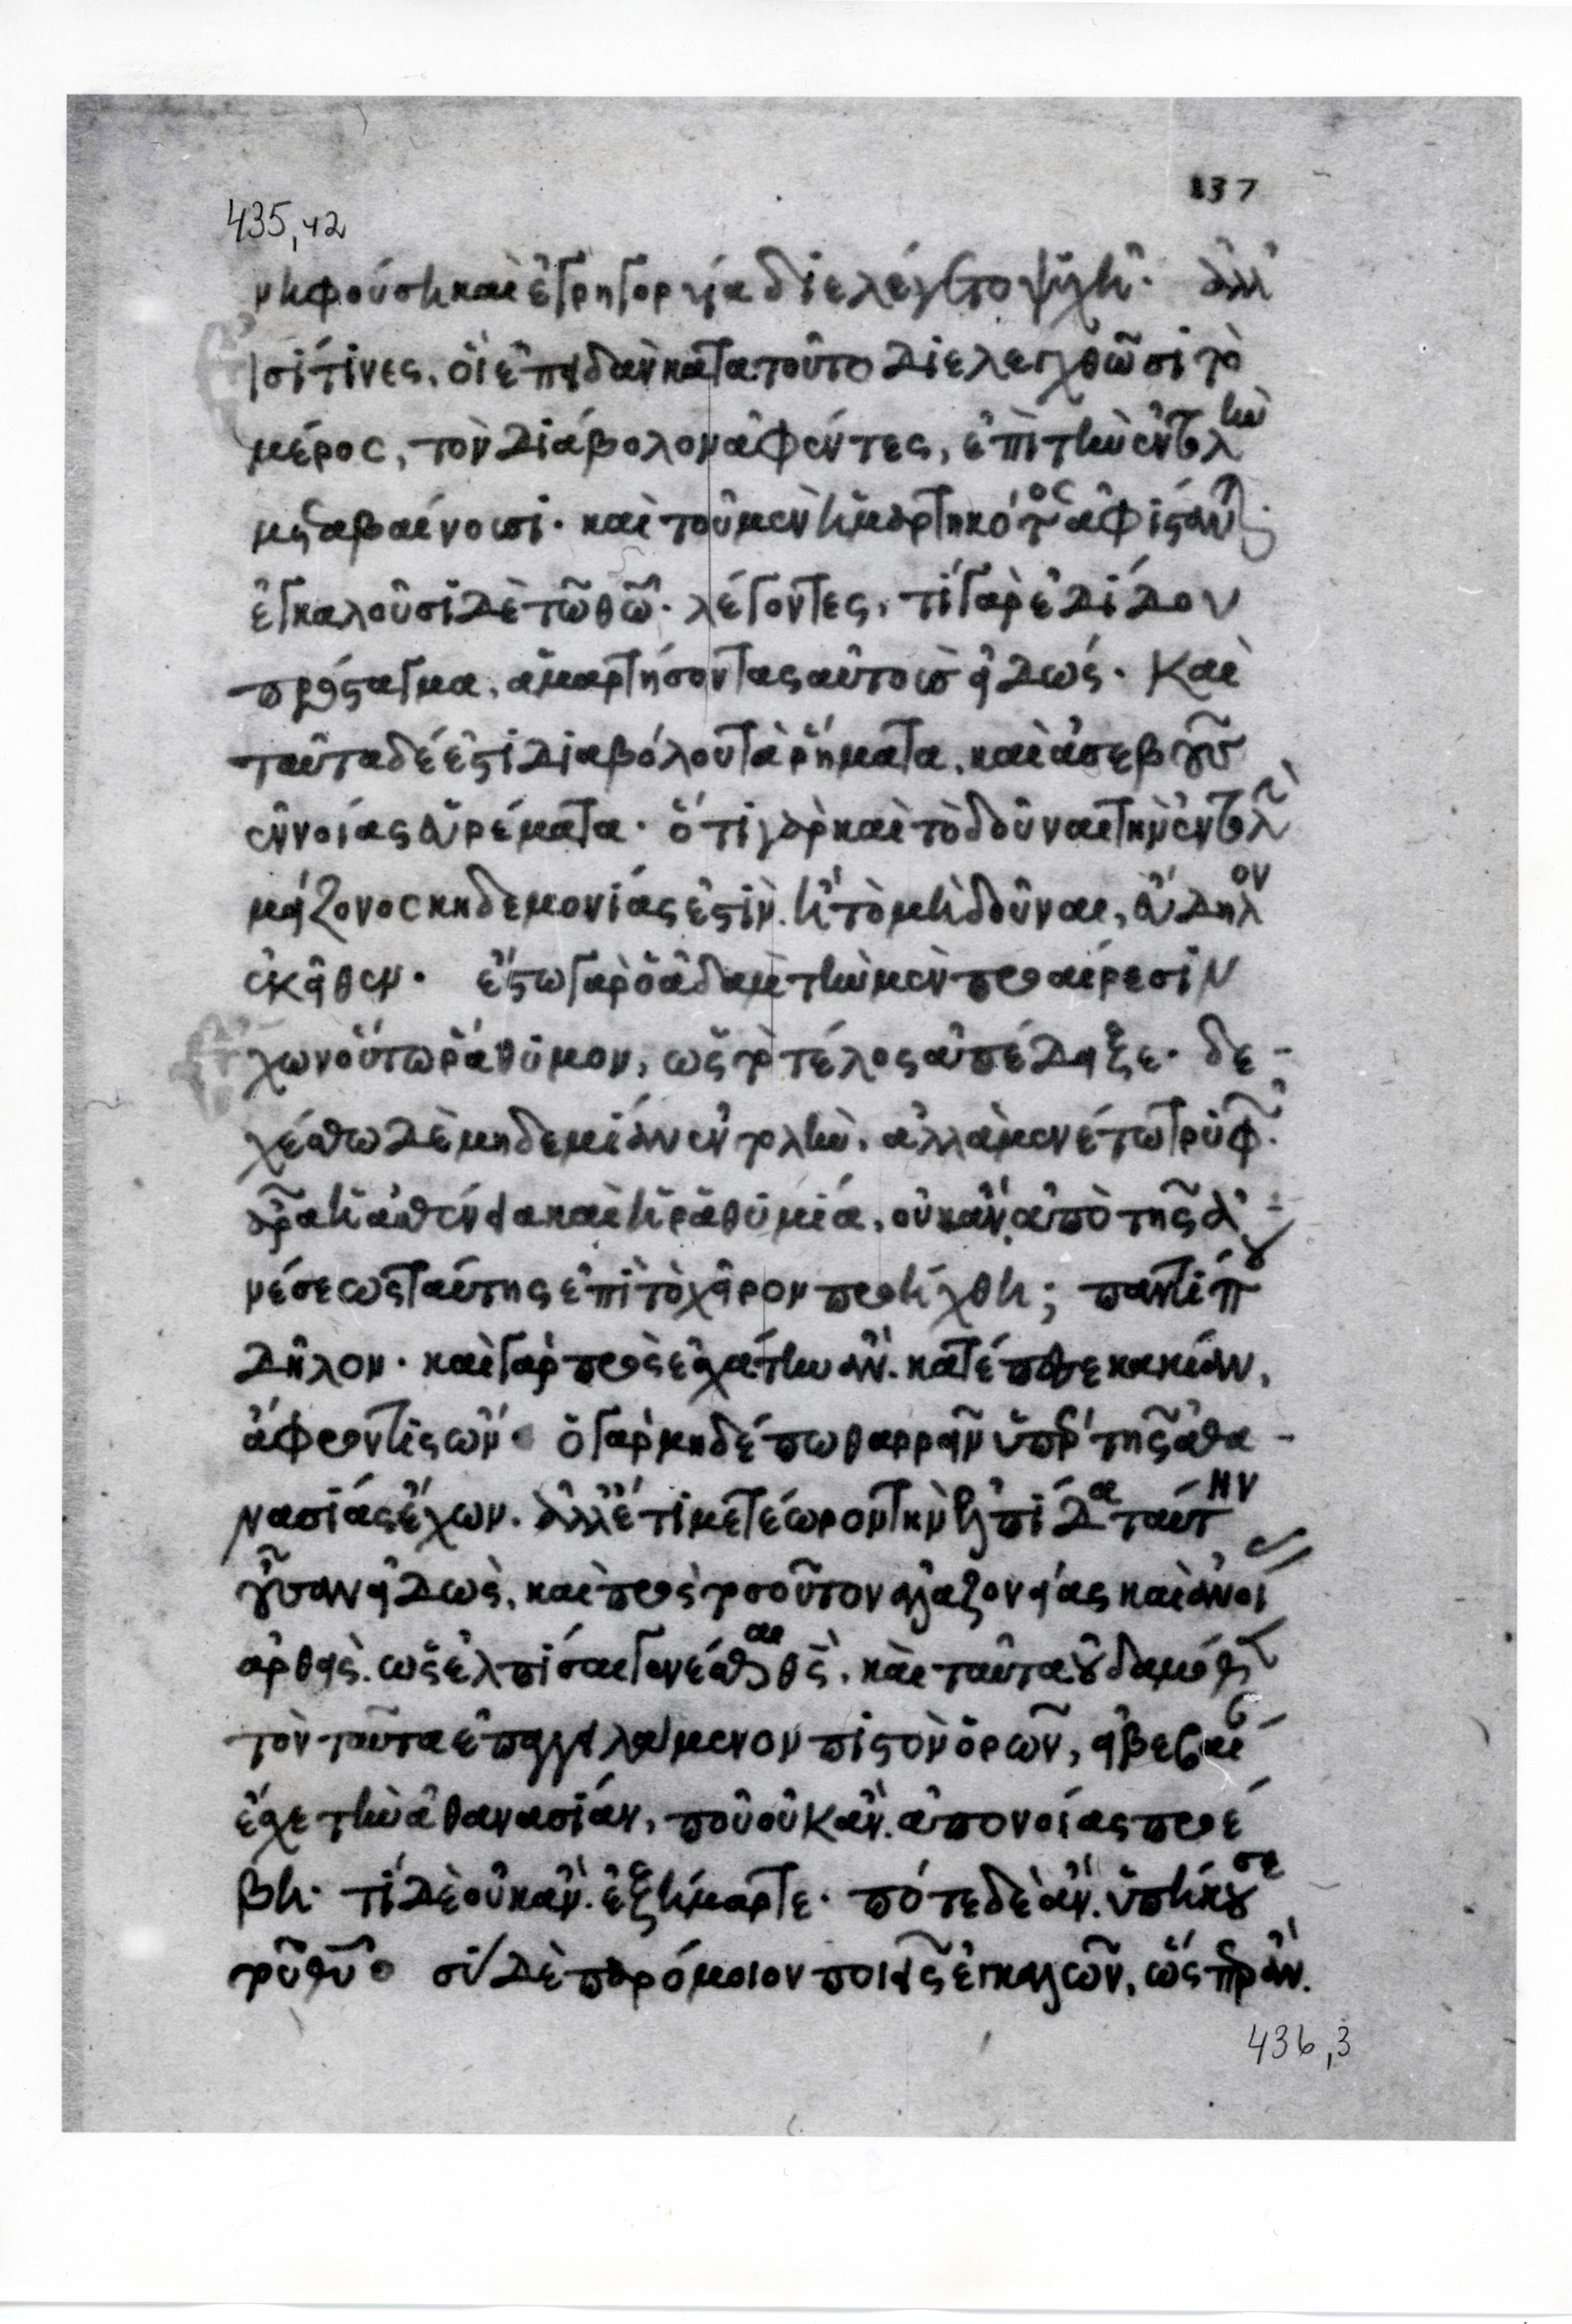 137
435,42
νηφούση καὶ ἐγρηγορυία διελέγετο ψυχῆ· ἀλλ'
εἰσί τινες, οἳ ἐπειδὰν κατὰ τοῦτο διελεγχθῶσι τὸ
μέρος, τὸν διάβολον ἀφέντες, ἐπὶ τὴν ἐντολὴν
μεταβαίνουσι· καὶ τοῦ μὲν ἡμαρτηκότος ἀφίστανται
ἐγκαλοῦσι δὲ τῶ θῶ· λέγοντες, τί γὰρ ἐδίδου
πρόσταγμα, ἁμαρτήσοντας αὐτοὺς εἰδώς· καὶ
ταῦτα δέ ἐστι διαβόλου τὰ ῥήματα, καὶ ἀσεβοῦς
ἐννοίας εὑρέματα· ὅτι γὰρ καὶ τὸ δοῦναι τὴν ἐντολὴν
μείζονος κηδεμονίας ἐστὶν ἢ τὸ μὴ δοῦναι, εὔδηλον
ἐκεῖθεν· ἔστω γὰρ ὁ ἀδὰμ τὴν μὲν προαίρεσιν
ἔχων οὕτω ῥάθυμον, ὡς τὸ τέλος ἀπέδειξε· δε-
χέσθω δὲ μηδεμίαν ἐντολὴν, ἀλλὰ μενέτω τρυφῶν·
ἆρα ἡ ἀσθένεια καὶ ἡ ῥαθυμία, οὐκ ἂν ἀπὸ τῆς ἀ-
νέσεως ταύτης ἐπὶ τὸ χεῖρον προήχθη; παντί που
δῆλον· καὶ γὰρ πρὸς ἐσχάτην ἂν κατέπεσε κακίαν,
ἀφροντιστῶν· ὁ γὰρ μηδέπω θαρρεῖν ὑπὲρ τῆς ἀθα-
νασίας ἔχων, ἀλλ' ἔτι μετέωρον τὴν ἐλπίδα ταύτην
οὖσαν εἰδὼς, καὶ πρὸς τοσοῦτον ἀλαζονείας καὶ ἀνοίας
ἀρθεὶς ὡς ἐλπίσαι γενέσθαι θς, καὶ ταῦτα οὐδαμόθεν
τὸν ταῦτα ἐπαγγειλάμενον πιστὸν ὁρῶν, εἰ βεβαίως
ἔσχε τὴν ἀθανασίαν, ποῦ οὐκ ἂν ἀπονοίας προέ
βη· τί δὲ οὐκ ἂν ἐξήμαρτε· πότε δὲ ἂν ὑπήκουσε
τοῦ θυ· σὺ δὲ παρόμοιον ποιεῖς ἐγκαλῶν, ὥσπερ ἂν
436,3